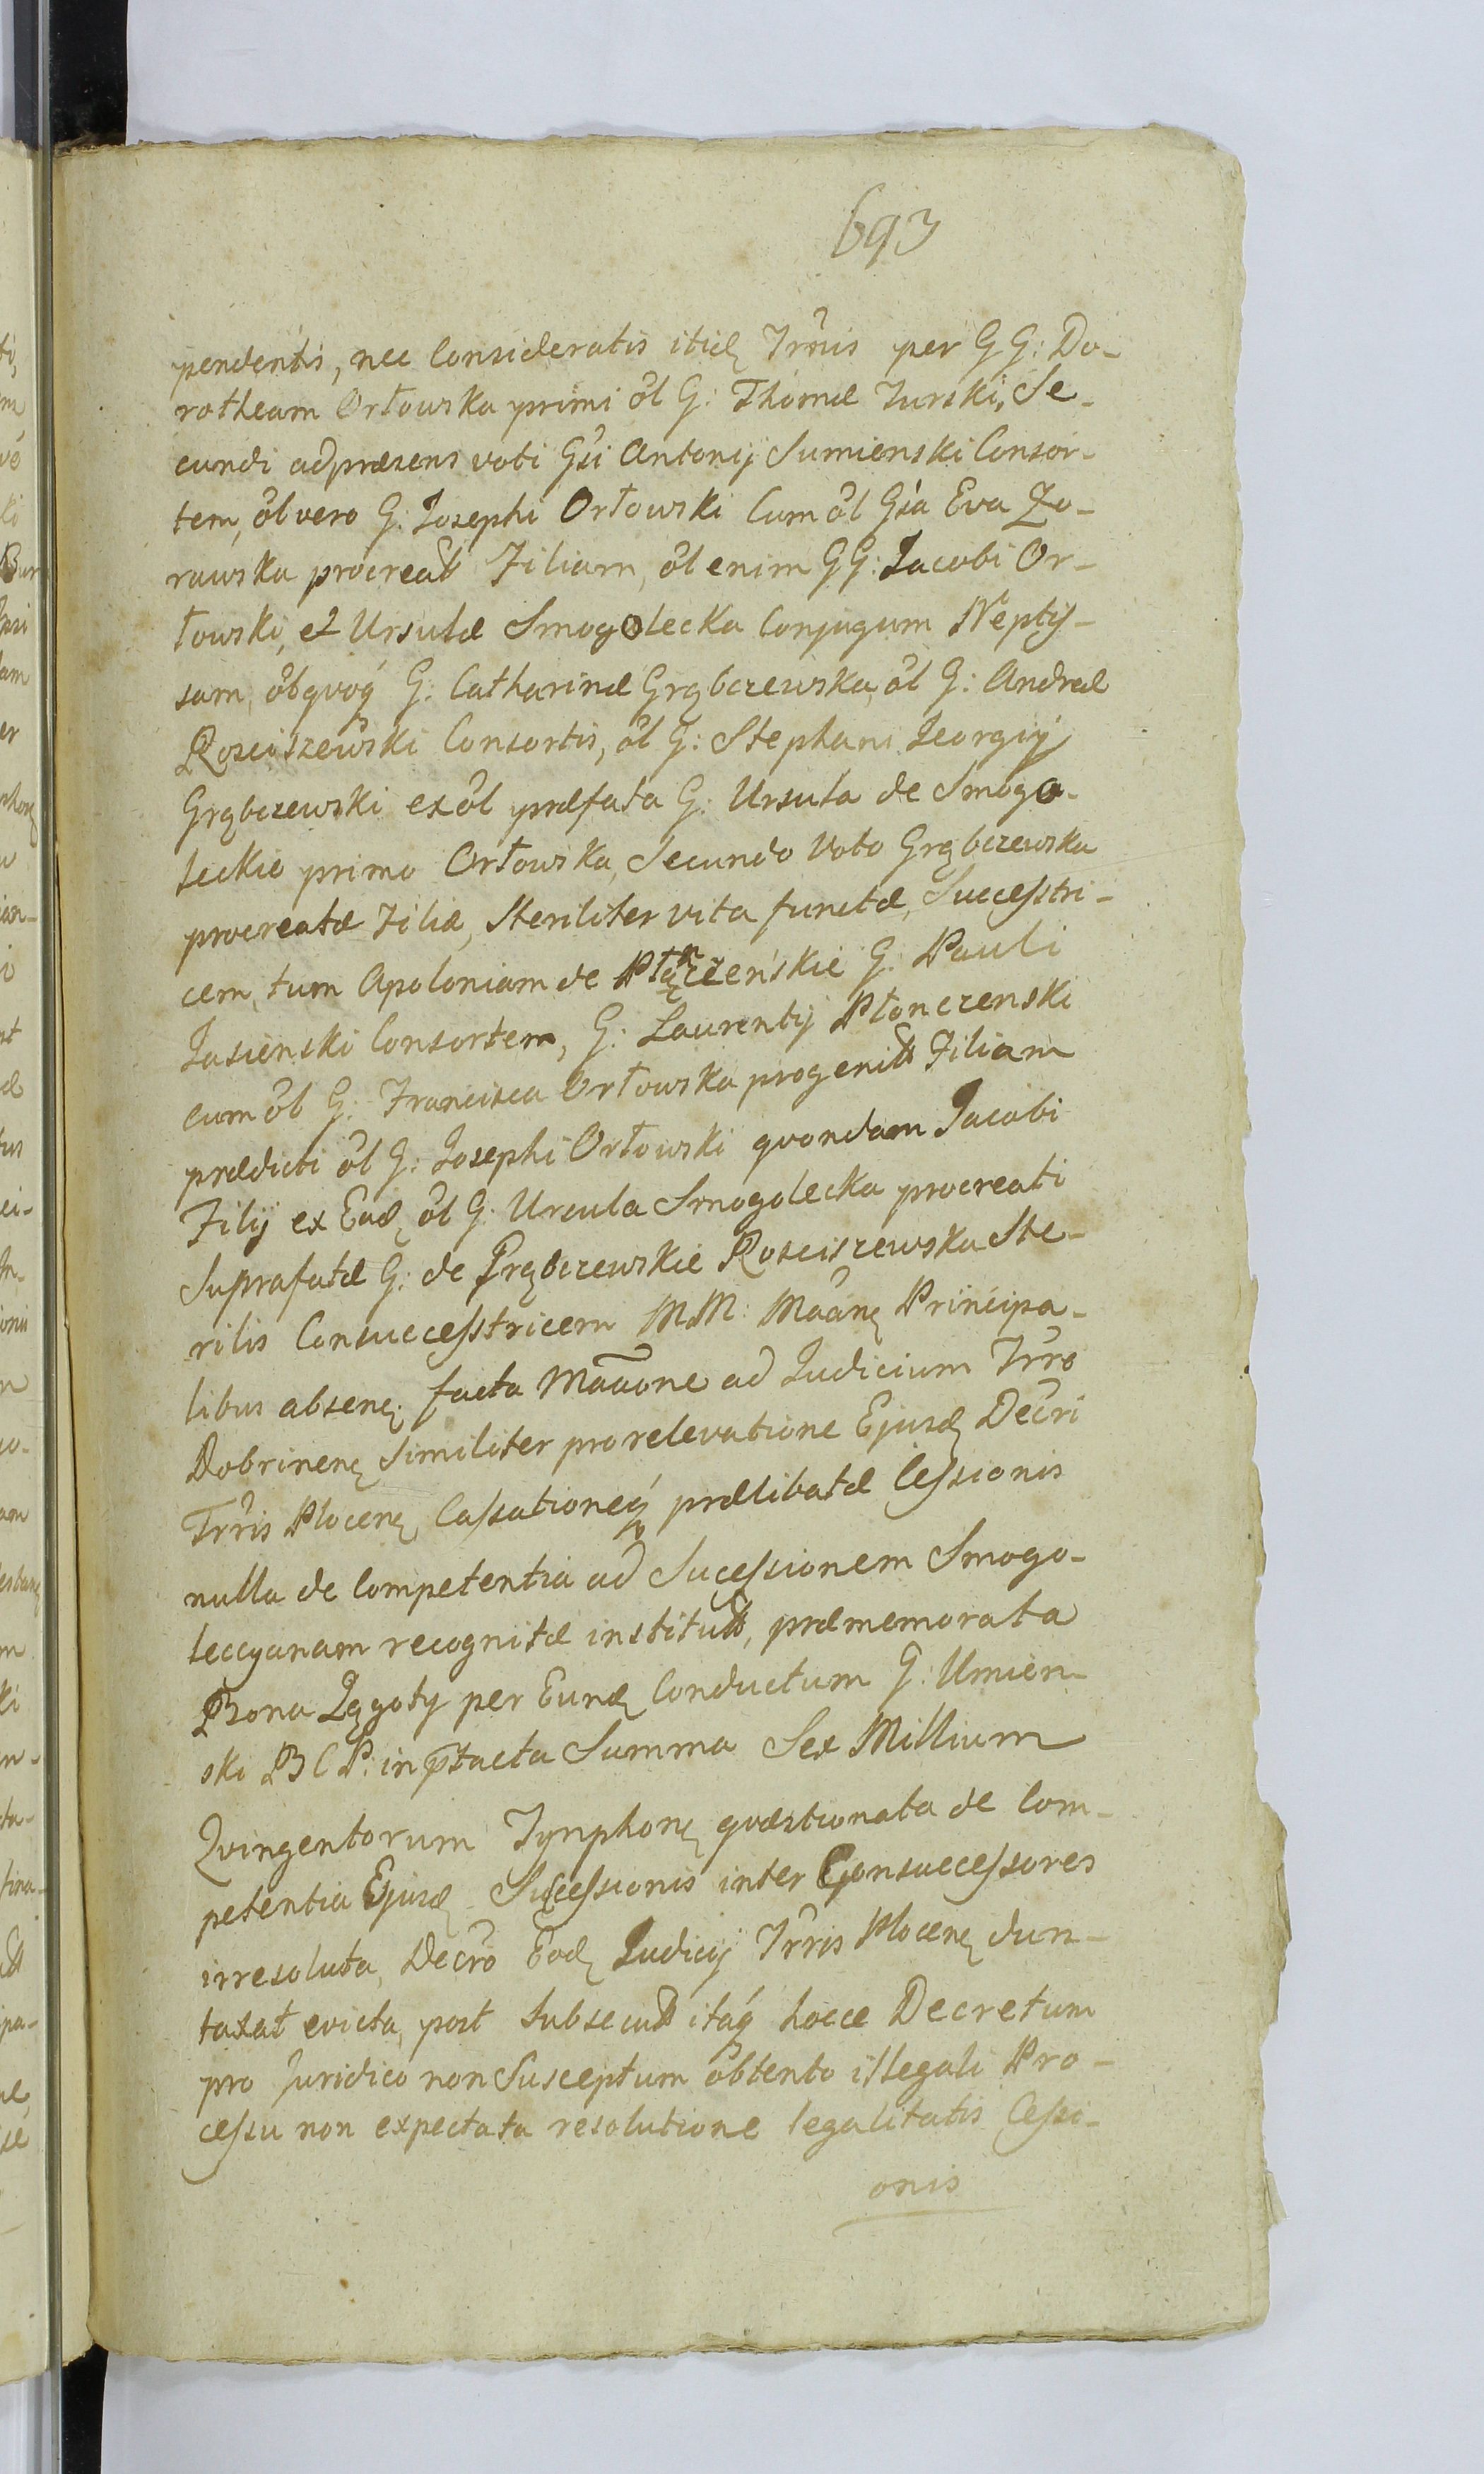 693
pendentis, nec Consideratis itid Trmis per GG: Do-
rotheam Orłowska primi ol G: Thomæ Turski, Se-
cundi ad præsens voti Gsi Antonij Sumienski Consor-
tem, ol vero G: Josephi Orłowski Cum ol Gsa Eva Zo-
rawska procreat Filiam, ol enim GG: Jacobi Or-
łowski, et Ursulæ Smogolecka Conjugum Neptis-
sam, ob quoq G: Catharinæ Grąbczewska, ol G: Andreæ
Rosciszewski Consortis, ol G: Stephani Georgij
Grąbczewski ex ol præfata G: Ursula de Smogo-
leckie primo Orłowska, Secundo Voto Grąbczewska
procreatæ Filiæ, Steriliter vita functæ, Successtri-
cem, tum Apoloniam de Płączeńskie G: Pauli
Jasienski Consortem, G: Laurentij Płonczenski
cum ol G: Francisca Orłowska progenitt Filiam
prædicti ol G: Josephi Orłowski quondam Jacobi
Filij ex Ead ol G: Ursula Smogolecka procreati
Suprafatæ G: de Grąbczewskie Rosciszewska Ste-
rilis Consuccesstricem MM: Maãne Principa-
libus absen: facta Maãone ad Judicium Trro
Dobrinen Similiter pro relevatione Ejusd Decri
Trris Plocen, Cassationeq prælibatæ Cessionis
nulla de Competentia ad Sucessionem Smogo-
leccyanam recognitæ institutt, præmemorata
Bona Lęgoty per Eund Conductum G: Umien-
ski B C P: in ptacta Summa Sex Millium
Quingentorum Tynphon quæstionata de Com-
petentia Ejusd Sucessionis inter Consuccessores
irresoluta, Decro Eod Judicij Trris Plocen dun-
taxat evicta, post Subsecutt itaq hocce Decretum
pro Juridico non Susceptum obtento illegali Pro-
cessu non expectata resolutione legalitatis Cessi-
onis